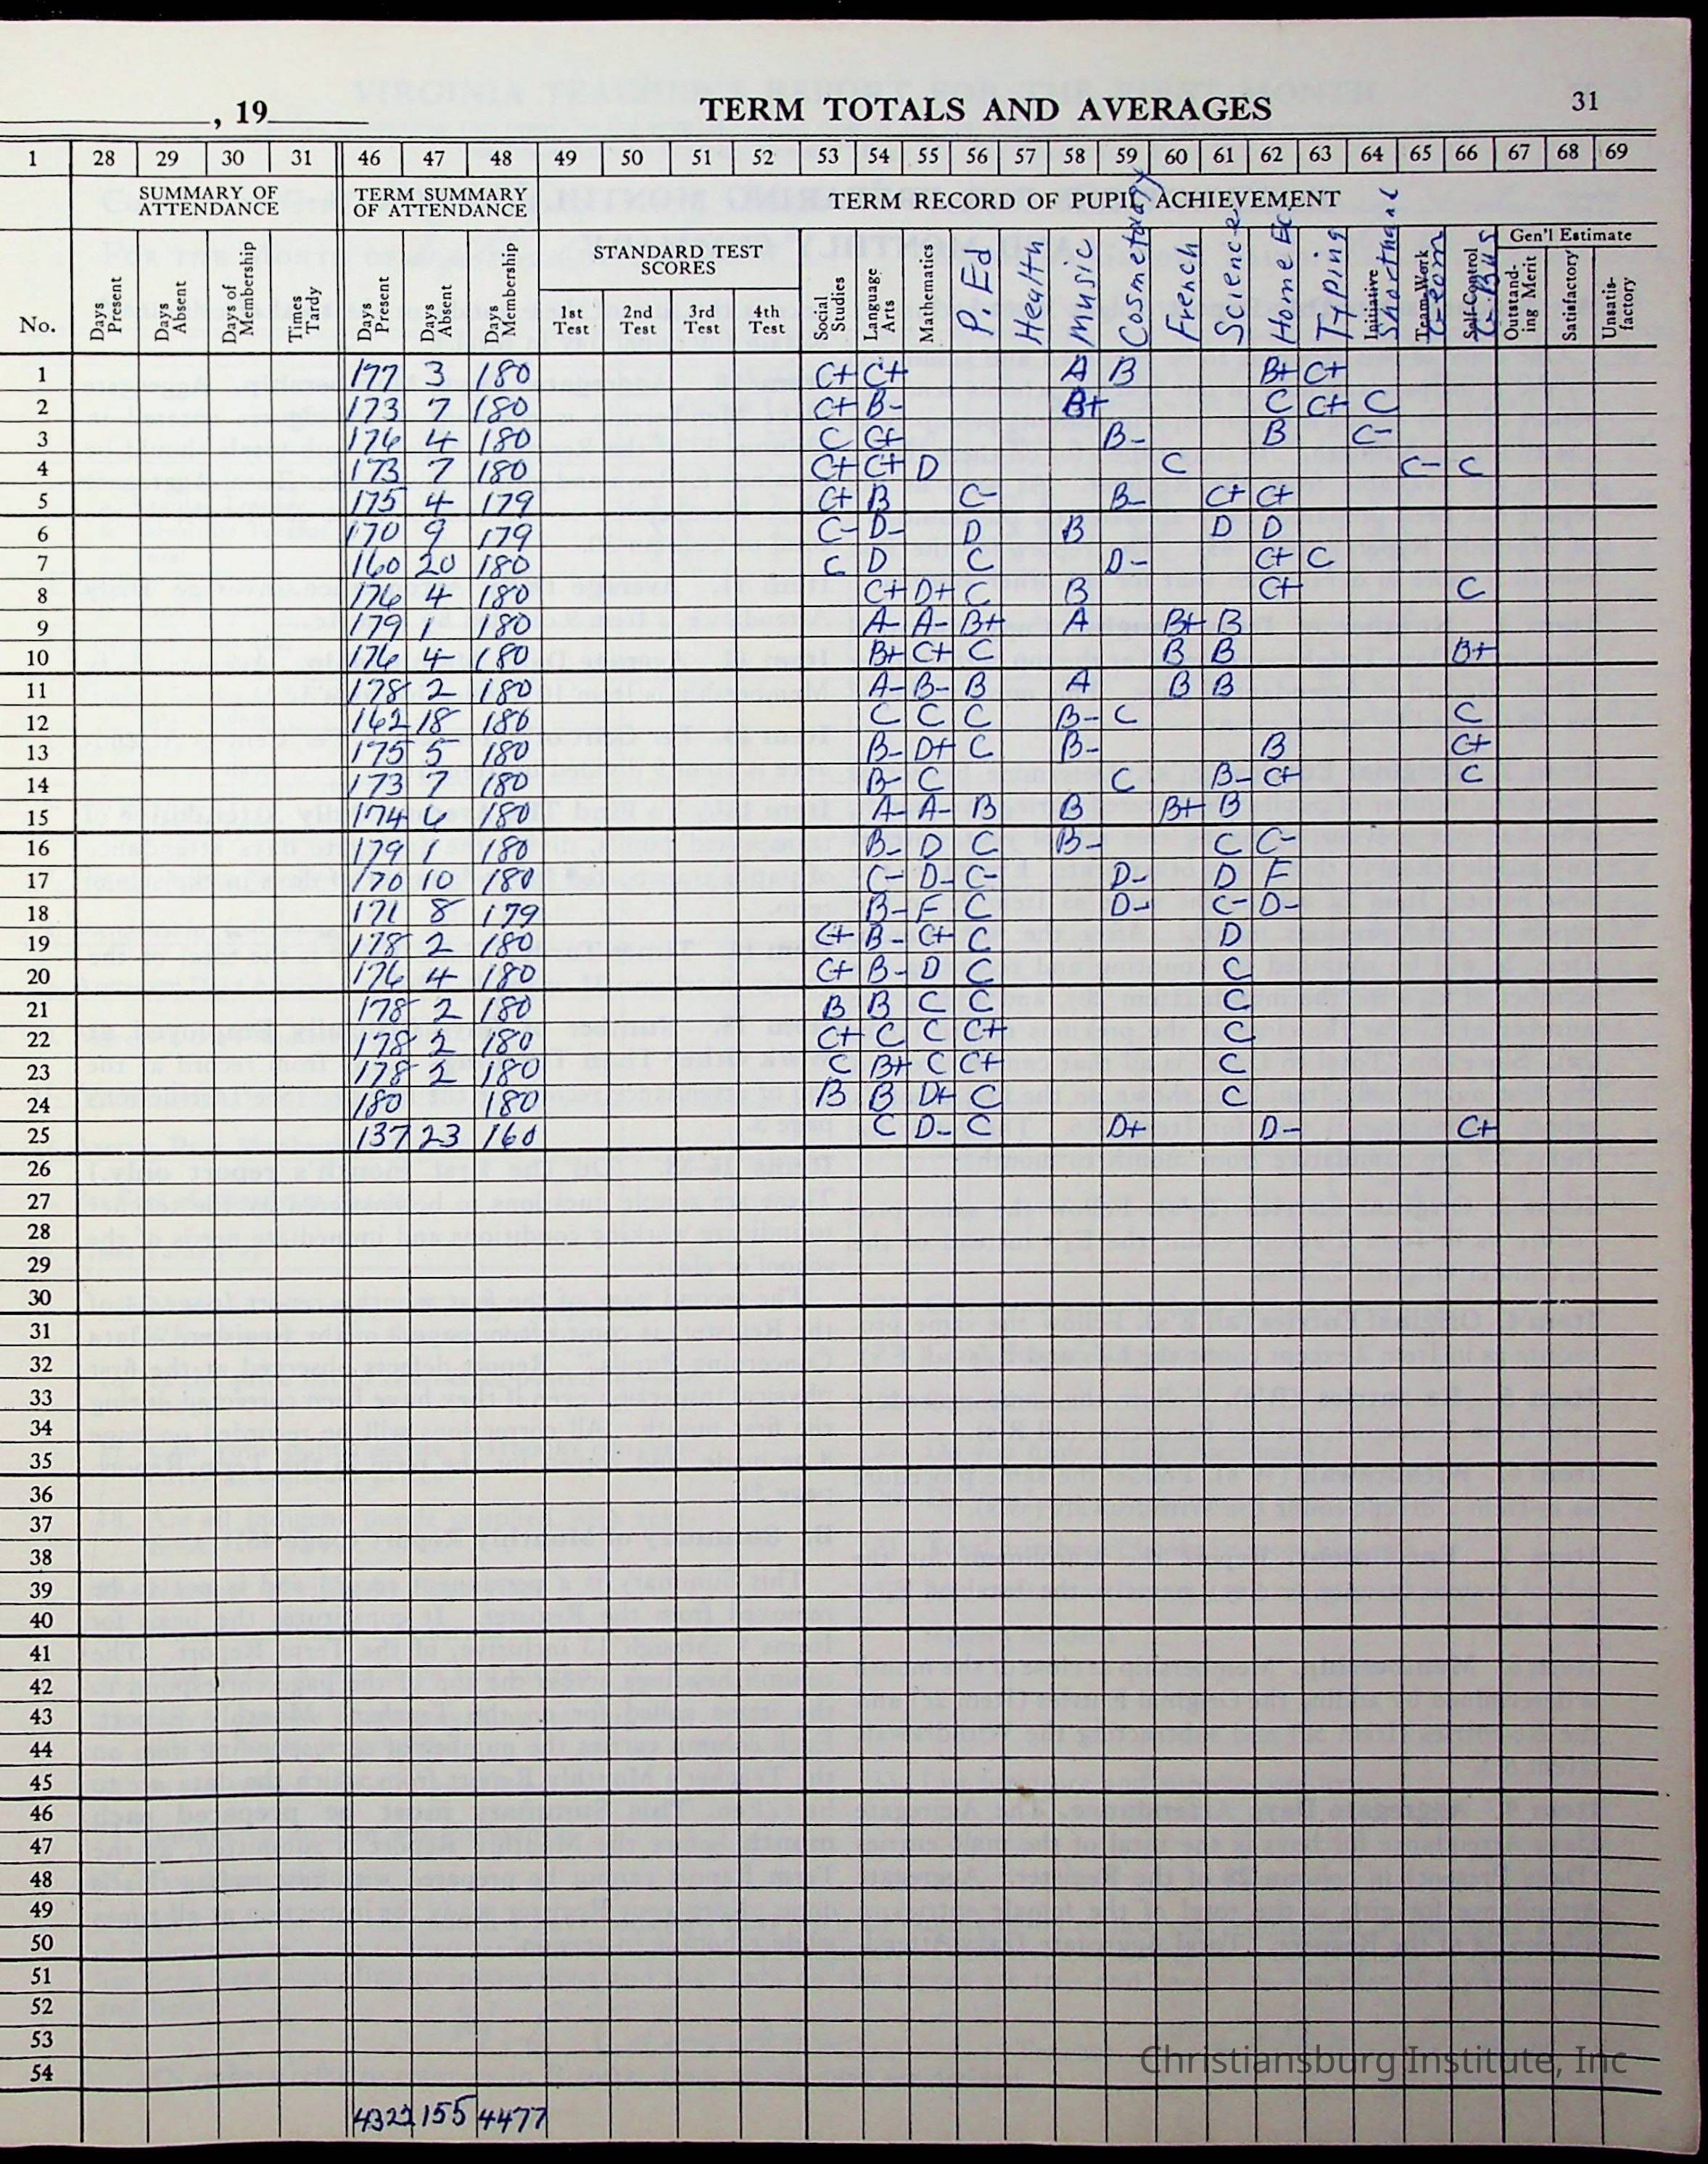 , 19 TERM TOTALS AND AVERAGES 31
1 28 29 30 31 46 47 48 49 50 51 52 53 54 55 56 57 58 59 60 61 62 63 64 65 66 67 68 69
SUMMARY OF ATTENDANCE TERM SUMMARY OF ATTENDANCE TERM RECORD OF PUPIL ACHIEVEMENT
STANDARD TEST SCORES Gen'l Estimate
No. Days Present Days Absent Days of Membership Times Tardy Days Present Days Absent Days of Membership 1st Test 2nd Test 3rd Test 4th Test Social Studies Language Arts Mathematics P. Ed Health Music Cosmetology French Science Home Ec. Typing Initiative Shorthand Team-Work Geom Self-Control G-Bus Outstanding Merit Satisfactory Unsatisfactory
1 177 3 180 C+ C+ A B B+ C+
2 173 7 180 C+ B- B+ C C+ C
3 176 4 180 C C+ B- B C-
4 173 7 180 C+ C+ D C C- C
5 175 4 179 C+ B C- B- C+ C+
6 170 9 179 C- D- D B D D
7 160 20 180 C D C D- C+ C
8 176 4 180 C+ D+ C B C+ C
9 179 1 180 A- A- B+ A B+ B
10 176 4 180 B+ C+ C B B B+
11 178 2 180 A- B- B A B B
12 162 18 180 C C C B- C C
13 175 5 180 B- D+ C B- B C+
14 173 7 180 B- C C B- C+ C
15 174 6 180 A- A- B B B+ B
16 179 1 180 B- D C B- C C-
17 170 10 180 C- D- C- D- D F
18 171 8 179 B- F C D- C- D-
19 178 2 180 C+ B- C+ C D
20 176 4 180 C+ B- D C C
21 178 2 180 B B C C C
22 178 2 180 C+ C C C+ C
23 178 2 180 C B+ C C+ C
24 180 180 B B D+ C C
25 137 23 160 C D- C D+ D- C+
26
27
28
29
30
31
32
33
34
35
36
37
38
39
40
41
42
43
44
45
46
47
48
49
50
51
52
53
54
Christiansburg Institute, Inc
4322 155 4477